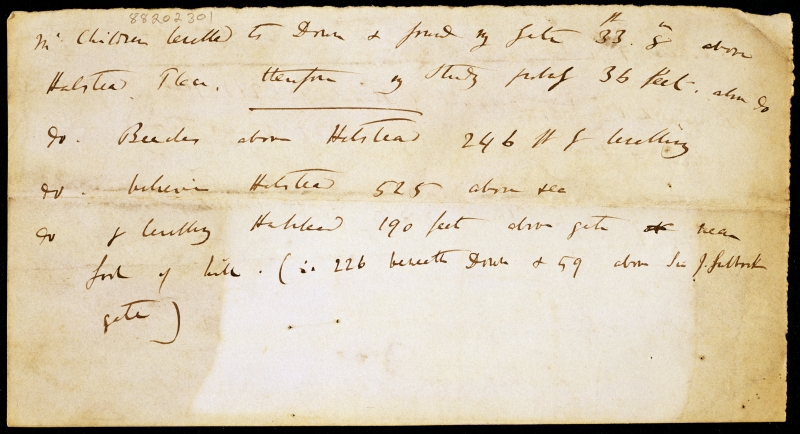 88202301
Mr Children levelled to Down & found my gate 33. ft 8 in above
Halstead Place. therefore my Study probably 36 feet. above do
do. Beeches above Halstead 246 ft by levelling
do. believes Halstead 525 above sea
do by levelling Halstead 190 feet above gate near
foot of hill. (i.e. 226 beneath Down & 59 above Sir J. Lubbock
gate)